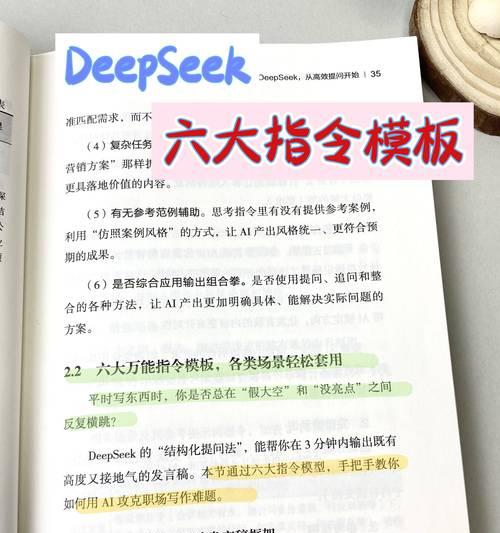 DeepSeek
DeepSeek，从高效提问开始 | 35
六大指令模板
准匹配需求，而不
（4）复杂任务
营销方案”那样
更具落地价值的内容。
（5）有无参考范例辅助。思考指令里有没有提供参考案例，
利用“仿照案例风格”的方式，让 AI 产出风格统一、更符合预
期的成果。
（6）是否综合应用输出组合拳。是否使用提问、追问和整
合的各种方法，让 AI 产出更加明确具体、能解决实际问题的
方案。
2.2 六大万能指令模板，各类场景轻松套用
平时写东西时，你是否总在“假大空”和“没亮点”之间
反复横跳？
DeepSeek 的“结构化提问法”，能帮你在 3 分钟内输出既有
高度又接地气的发言稿。本节通过六大指令模型，手把手教你
如何用 AI 攻克职场写作难题。